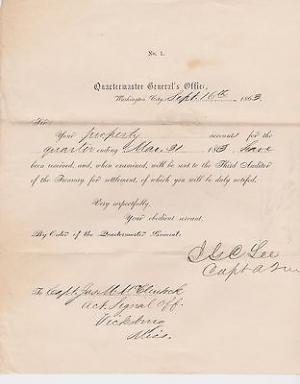 No. 1.
Quartermaster General's Office,
Washington City, Sept. 16th 1863.
Sir:
Your property accounts for the
quarter ending Mar. 31 1863 have
been received, and, when examined, will be sent to the Third Auditor
of the Treasury for settlement, of which you will be duly notified.
Very respectfully,
Your obedient servant.
By Order of the Quartermaster General:
J G C Lee
Capt
To Capt. Jas. M. McClintock
Act. Signal Off
Vicksburg
Miss.